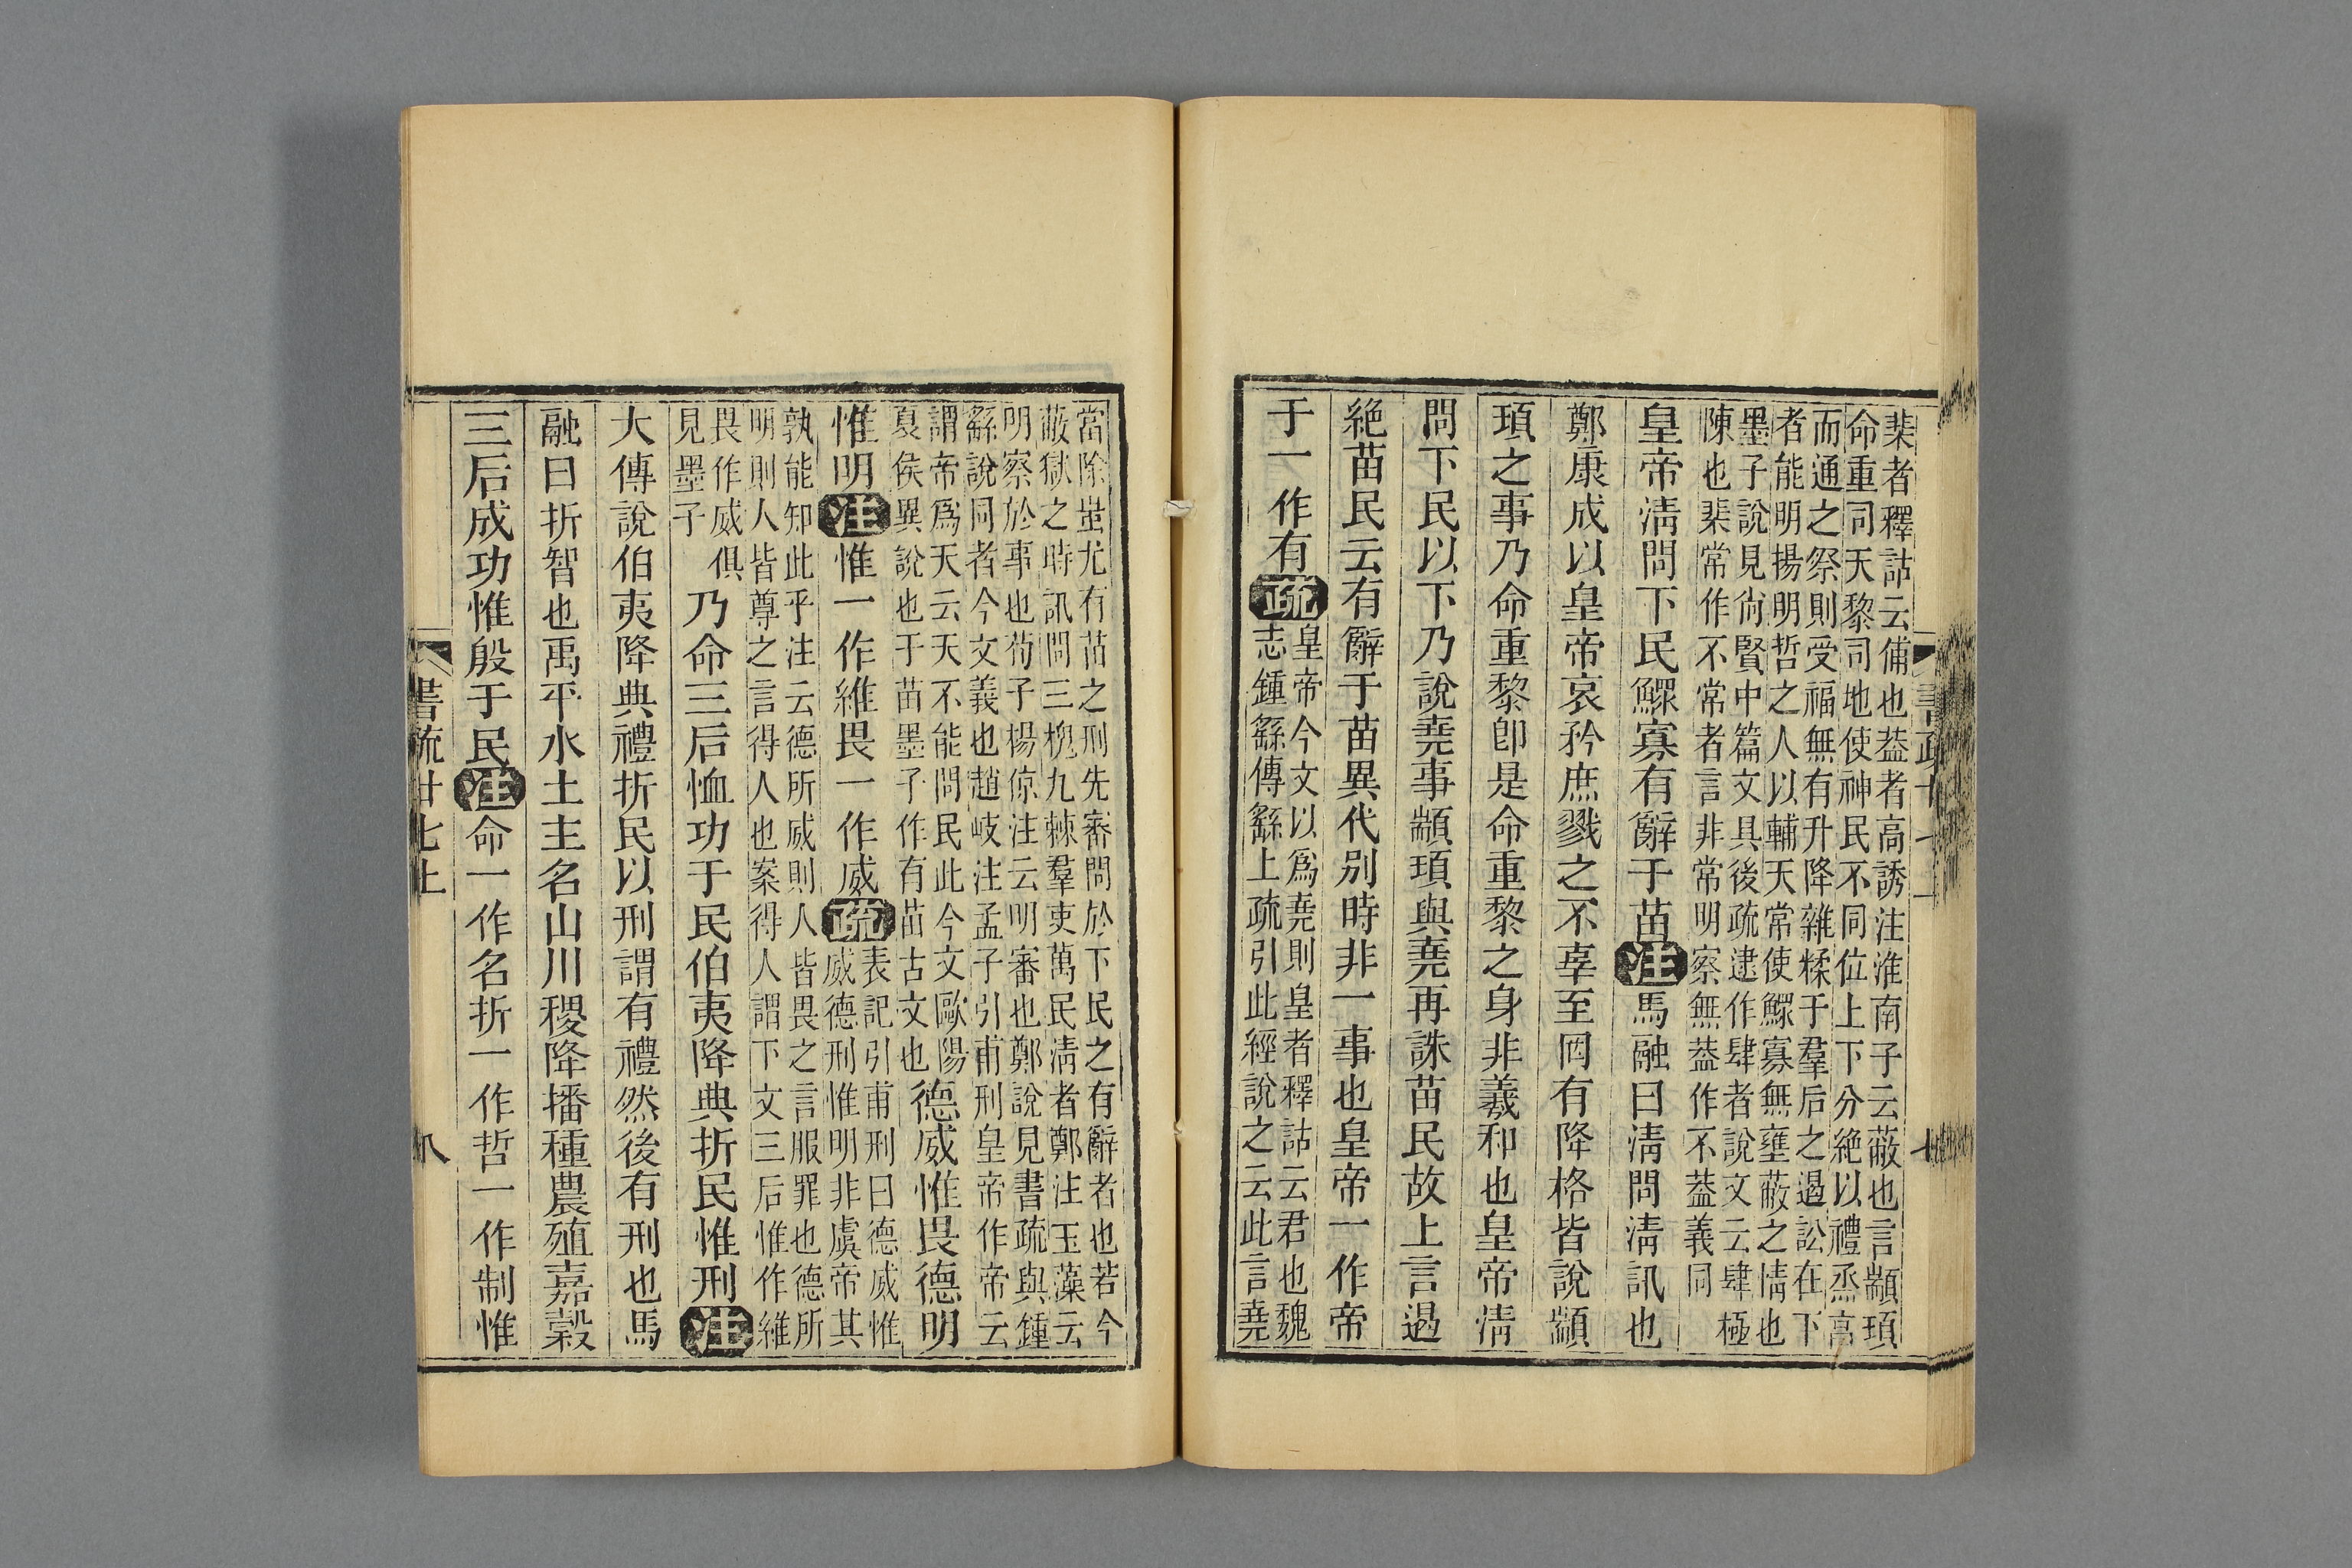 棐者釋詁云俌也葢者高誘注淮南子云蔽也言顓頊
命重司天黎司地使神民不同位上下分絶以禮烝享
而通之祭則受福無有升降雜糅于羣后之過訟在下
者能明揚明哲之人以輔天常使鰥寡無壅蔽之情也
墨子說見尙賢中篇文具後疏逮作肆者說文云肆極
陳也棐常作不常者言非常明察無葢作不葢義同
皇帝淸問下民鰥寡有辭于苗注馬融曰淸問淸訊也
鄭康成以皇帝哀矜庶戮之不辜至罔有降格皆說顓
頊之事乃命重黎卽是命重黎之身非羲和也皇帝淸
問下民以下乃說堯事顓頊與堯再誅苗民故上言遏
絶苗民云有辭于苗異代別時非一事也皇帝一作帝
于一作有疏
皇帝今文以爲堯則皇者釋詁云君也魏
志鍾繇傳繇上疏引此經說之云此言堯
當除蚩尤有苗之刑先審問於下民之有辭者也若今
蔽獄之時訊問三槐九棘羣吏萬民淸者鄭注玉藻云
明察於事也荀子楊倞注云明審也鄭說見書疏與鍾
繇說同者今文義也趙岐注孟子引甫刑皇帝作帝云
謂帝爲天云天不能問民此今文歐陽
夏侯異說也于苗墨子作有苗古文也
德威惟畏德明
惟明注惟一作維畏一作威疏
表記引甫刑曰德威惟
威德刑惟明非虞帝其
孰能如此乎注云德所威則人皆畏之言服罪也德所
明則人皆尊之言得人也案得人謂下文三后惟作維
畏作威俱
見墨子
乃命三后恤功于民伯夷降典折民惟刑注
大傳說伯夷降典禮折民以刑謂有禮然後有刑也馬
融曰折智也禹平水土主名山川稷降播種農殖嘉穀
三后成功惟殷于民注命一作名折一作哲一作制惟
書疏廿七上
八